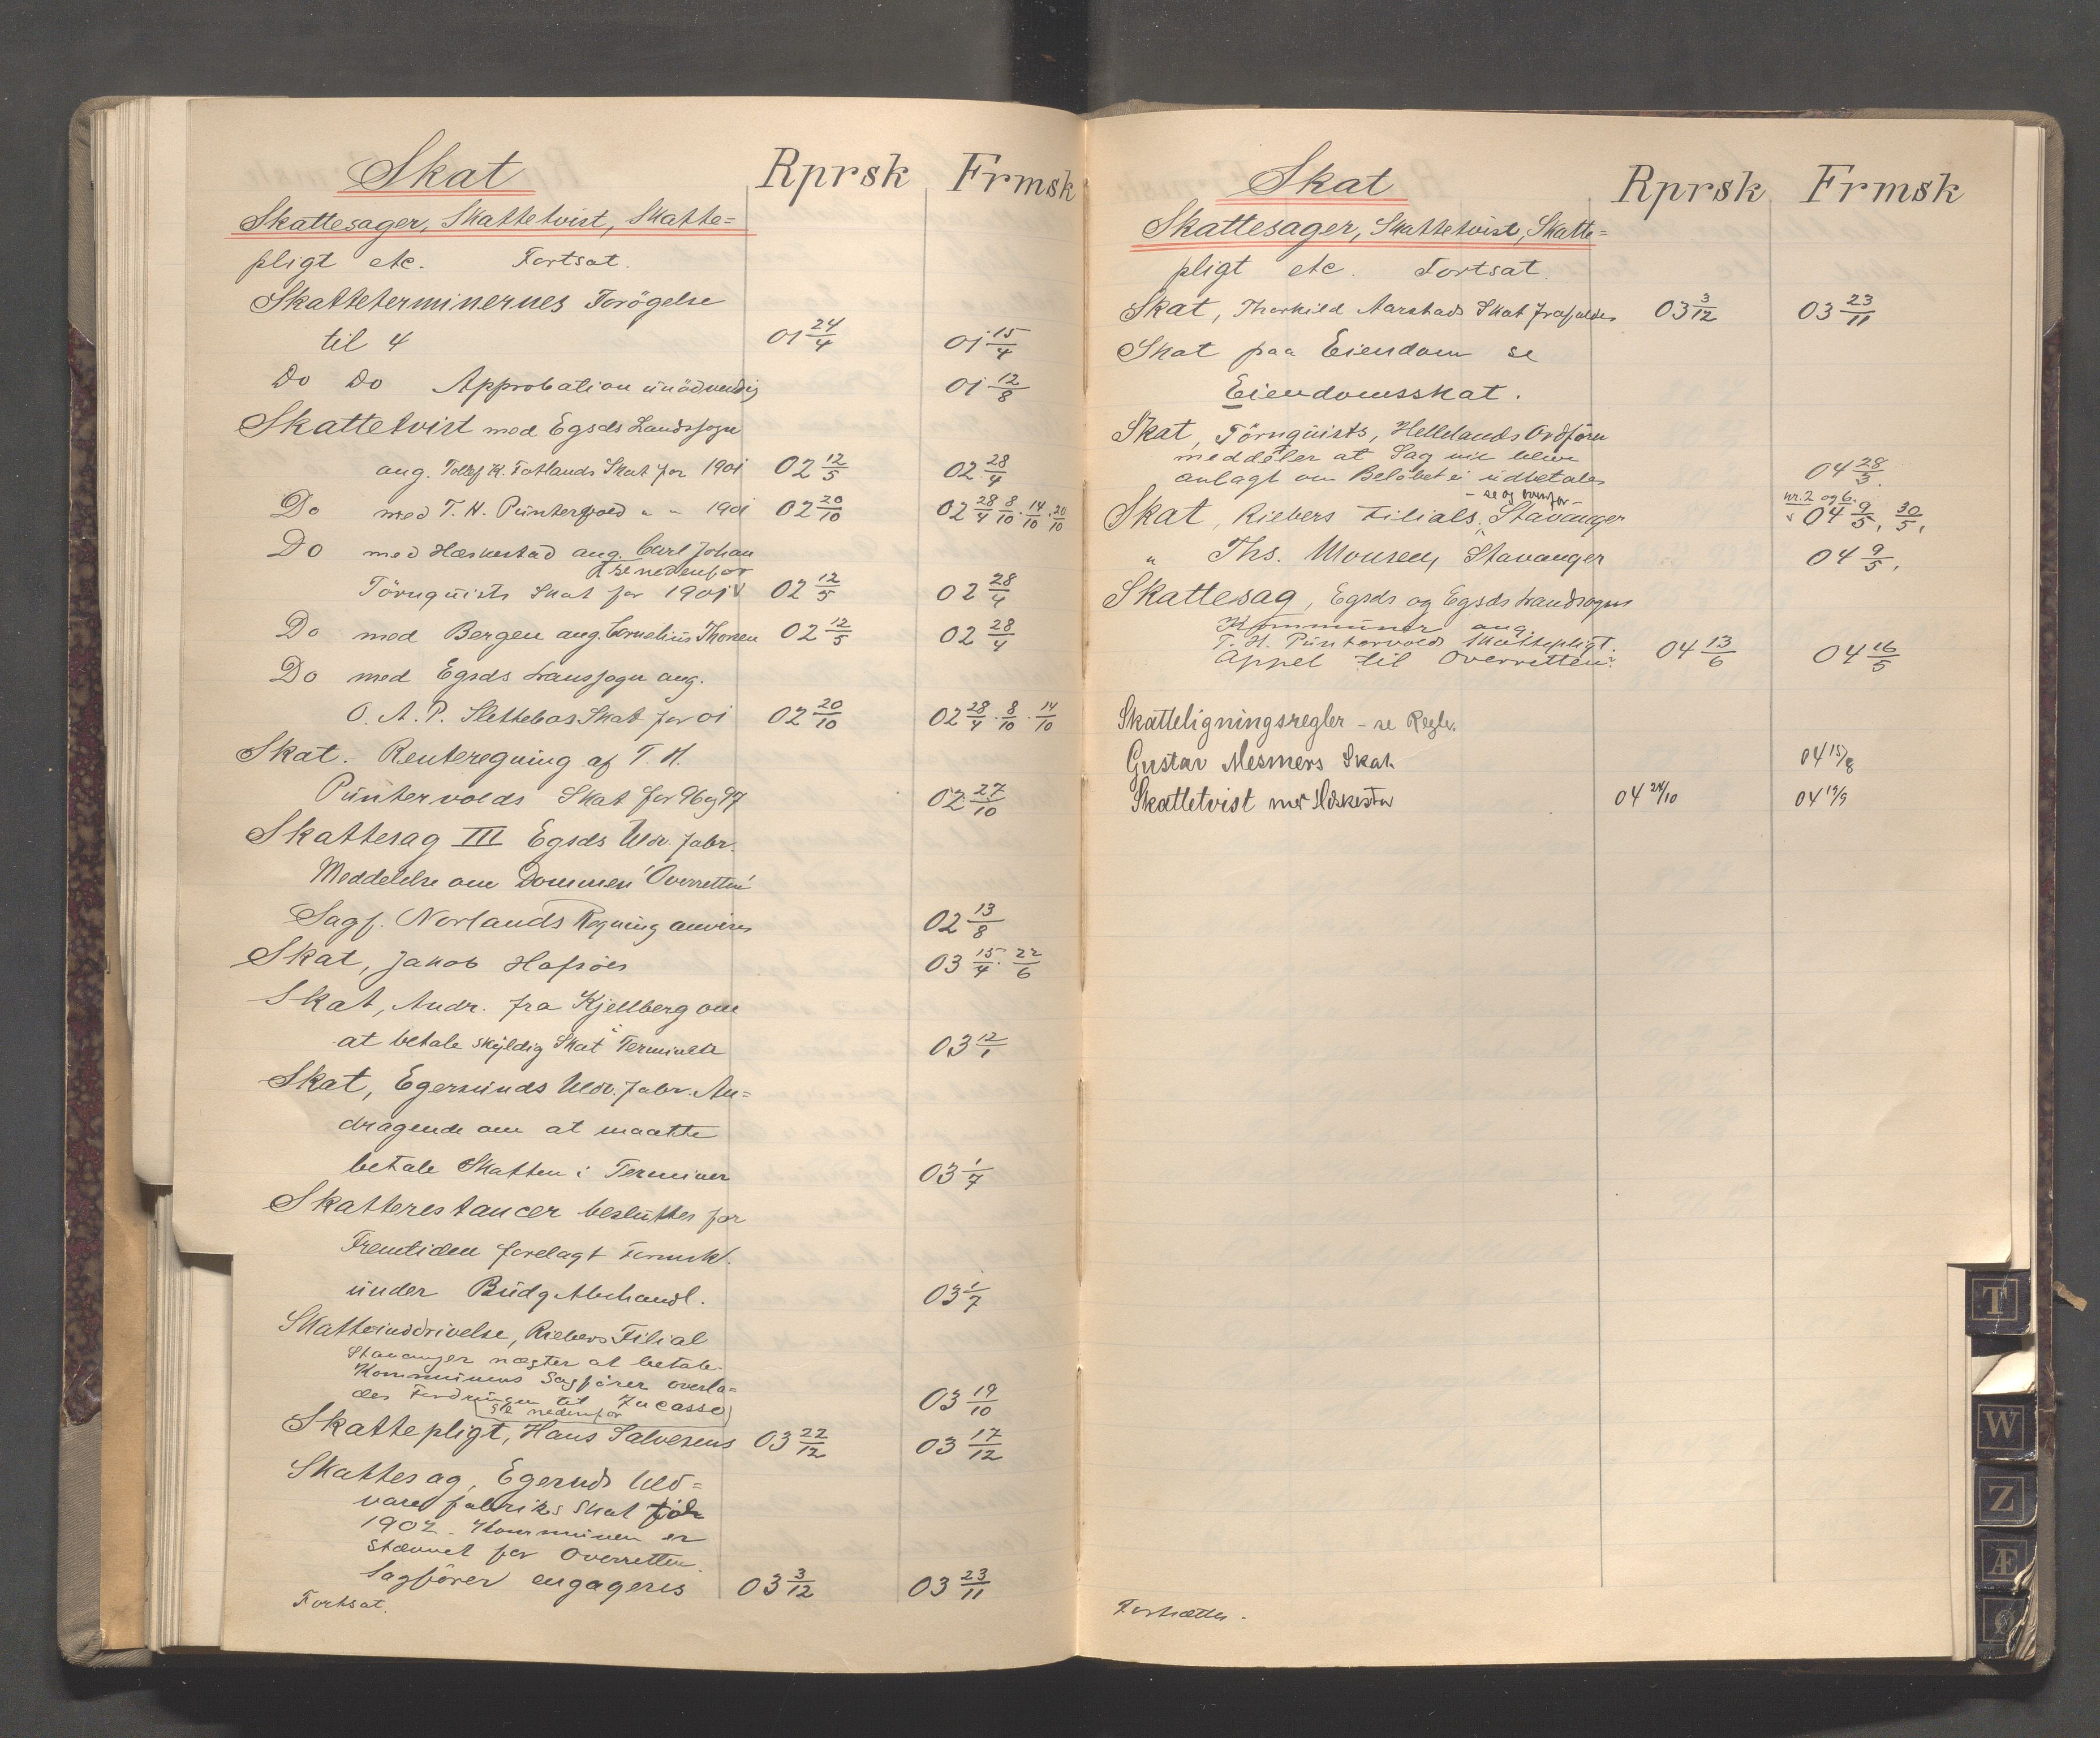 Skat Rprsk Frmsk
Skattesager, Skattetvist, Skatte=
pligt etc. Fortsat.
Skatteterminernes Forögelse
til 4 01 24/4 01 15/4
Do Do Approbation unödvendig 01 12/8
Skattetvist med Egsds Landsogn
ang. Tollef K. Fotlands Skat for 1901 02 12/5 02 28/4
Do med T. H. Puntervold " " 1901 02 20/10 02 28/4 8/10 · 14/10 · 20/10
Do med Hæskestad ang. Carl Johan
se nedenfor
Törnquists Skat for 1901 02 12/5 02 28/4
Do med Bergen ang. Cornelius Thorsen 02 12/5 02 28/4
Do med Egsds Landsogn ang.
O. A. P. Slettebøs Skat for 01 02 20/10 02 28/4 · 8/10 · 14/10
Skat. Renteregning af T. H.
Puntervolds Skat for 96 og 97 02 27/10
Skattesag III Egsds Uldv. fabr.
Meddelelse om Dommen i Overretten
Sagf. Norlands Regning anvises 02 13/8
Skat, Jakob Hafsöes 03 15/4 · 22/6
Skat, Andr. fra Kjellberg om
at betale skyldig Skat i Terminer 03 12/1
Skat, Egersunds Uldv. fabr. An=
dragende om at maatte
betale Skatten i Terminer 03 1/7
Skatterestancer besluttes for
Fremtiden forelagt Formsk.
under Budgetbehandl. 03 1/7
Skatteinddrivelse, Riebers Filial
Stavanger nægter at betale.
Kommunens Sagförer overla=
des Fordringen til Incasso
(se nedenfor)
Skattepligt, Hans Salvesens 03 22/12 03 17/12
Skattesag, Egersunds Uld=
varefabriks Skat for
1902 - Kommunen er
stævnet for Overretten.
Sagförer engageres 03 3/12 03 23/11
Fortsat.
Skat Rprsk Frmsk
Skattesager, Skattetvist, Skatte=
pligt etc. Fortsat.
Skat, Thorkild Aarstads Skat frafaldes 03 3/12 03 23/11
Skat paa Eiendom se
Eiendomsskat.
Skat, Törnquists, Hellelands Ordförer
meddeler at Sag vil blive
anlagt om Belöbet ei udbetales 04 28/3.
- se og ovenfor - nr. 2 og 6.
Skat, Riebers Filials, Stavanger 04 9/5, 30/5,
" Ths. Monsen, Stavanger 04 9/5,
Skattesag, Egsds og Egsds Landsogns
Kommuner ang.
T. H. Puntervolds Skattepligt.
Appel til Overretten. 04 13/6 04 16/5
Skatteligningsregler - se Regler.
Gustav Mesmers Skat 04 15/8
Skattetvist med Heskestad 04 24/10 04 19/9
Fortsættes.
T
W
Z
Æ
Ø